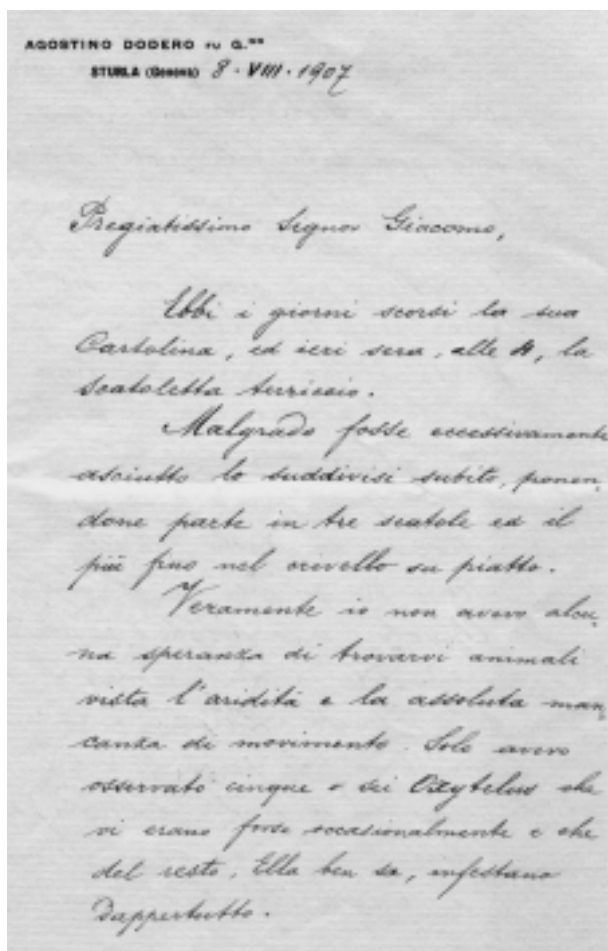 AGOSTINO DODERO FU G.
STURLA (Genova) 8 - VIII - 1907
Pregiatissimo Signor Giacomo,
Ebbi i giorni scorsi la sua
Cartolina, ed ieri sera, alle 4, la
scatoletta terriccio.
Malgrado fosse eccessivamente
asciutto lo suddivisi subito, ponen-
done parte in tre scatole ed il
più fino nel crivello su piatto.
Veramente io non avevo alcu-
na speranza di trovarvi animali
vista l'aridità e la assoluta man-
canza di movimento. Solo avevo
osservato cinque o sei Oxytelus che
vi erano forse occasionalmente e che
del resto, Ella ben sa, infestano
dappertutto.